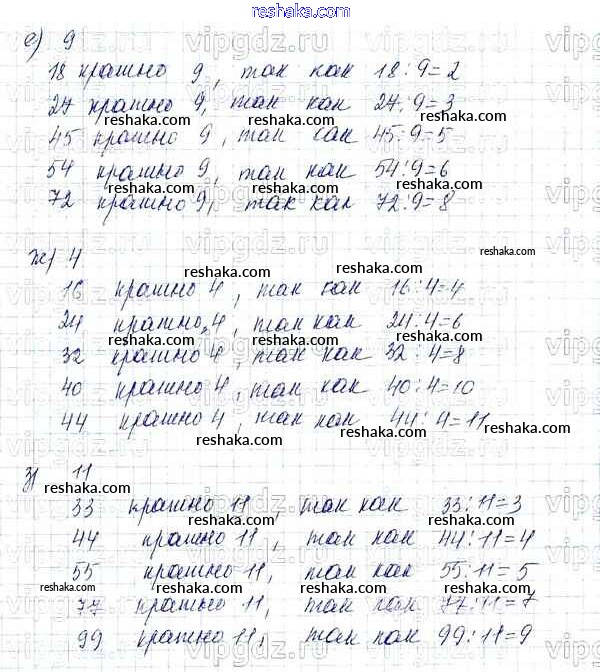 reshaka.com
е) 9
18 кратно 9, так как 18:9=2
27 кратно 9, так как 27:9=3
45 кратно 9, так как 45:9=5
54 кратно 9, так как 54:9=6
72 кратно 9, так как 72:9=8
ж) 4
16 кратно 4, так как 16:4=4
24 кратно 4, так как 24:4=6
32 кратно 4, так как 32:4=8
40 кратно 4, так как 40:4=10
44 кратно 4, так как 44:4=11
з) 11
33 кратно 11, так как 33:11=3
44 кратно 11, так как 44:11=4
55 кратно 11, так как 55:11=5
77 кратно 11, так как 77:11=7
99 кратно 11, так как 99:11=9